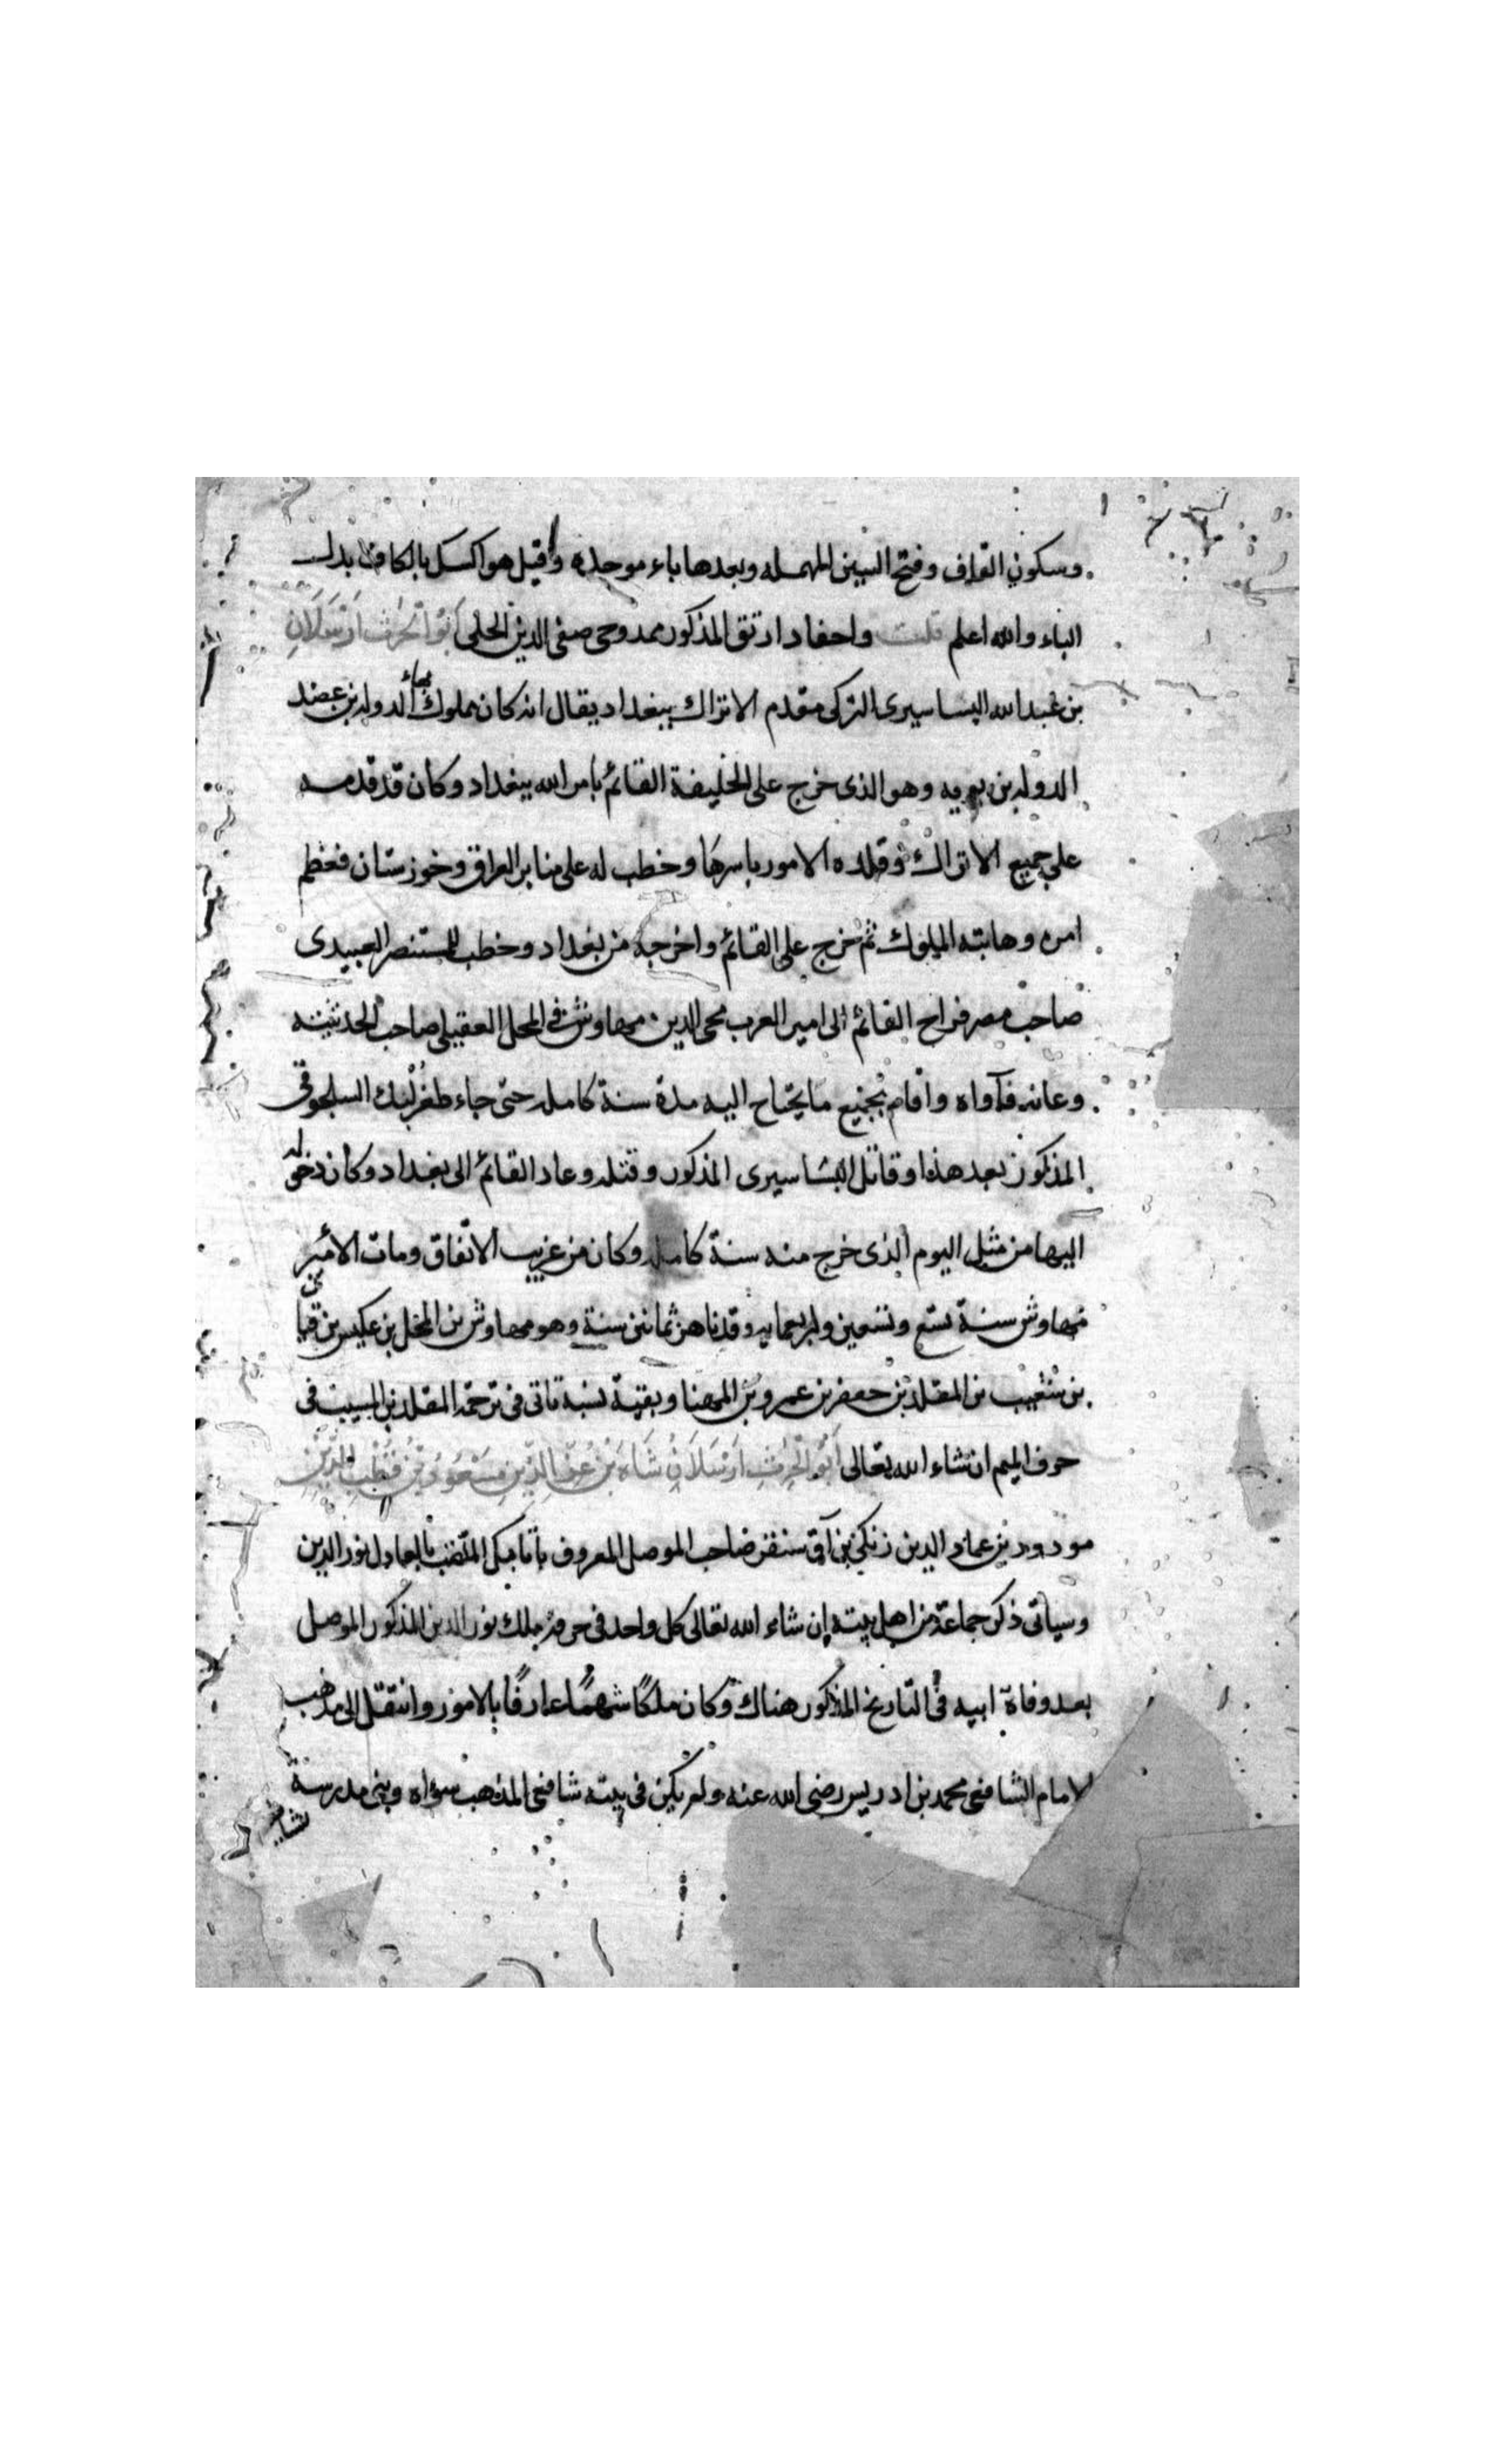 وسكون القاف وفتح السين المهمله وبعدها باء موحده وقيل هو اكسك بالكاف بدل
الباء والله اعلم قلت واحفاد ارتق المذكور ممدوحى صفى الدين الحلى ابو الحرث ارسلان
بن عبد الله البساسيرى التركى مقدم الاتراك ببغداد يقال انه كان مملوك بهاء الدوله بن عضد
الدوله بن بويه وهو الذى خرج على الخليفة القائم بامر الله ببغداد وكان قد قدمه
على جميع الاتراك وقلده الامور باسرها وخطب له على منابر العراق وخوزستان فعظم
امره وهابته الملوك ثم خرج على القائم واخرجه من بغداد وخطب للمستنصر العبيدى
صاحب مصر فراح القائم الى امير العرب محى الدين مهاوش فى المحل العقيلى صاحب الحديثه
وعانه فآواه واقام بجميع ما يحتاج اليه مدة سنة كامله حتى جاء طغرلبك السلجوقى
المذكور بعد هذا وقاتل البساسيرى المذكور وقتله وعاد القائم الى بغداد وكان دخوله
اليها من مثل اليوم الذى خرج منه سنة كامله وكان من غريب الاتفاق ومات الامير
مهاوش سنة تسع وتسعين واربعمايه وقد ناهز ثمانين سنة وهو مهاوش بن المخل بن عكيس بن قبان
بن شعيب بن المقلد بن جعفر بن عمرو بن المهنا وبقية نسبه تاتى فى ترجمة المقلد بن المسيب فى
حرف الميم ان شاء الله تعالى ابو الحرث ارسلان شاه بن عز الدين مسعود بن قطب الدين
مودود بن عماد الدين زنكى بن آق سنقر صاحب الموصل المعروف باتابك الملقب بالعادل نور الدين
وسياتى ذكر جماعة من اهل بيته إن شاء الله تعالى كل واحد فى حرفه ملك نور الدين المذكور الموصل
بعد وفاة ابيه فى التاريخ المذكور هناك وكان ملكًا شهمًا عارفًا بالامور وانتقل الى مذهب
الامام الشافعى محمد بن ادريس رضى الله عنه ولم يكن فى بيته شافعى المذهب سواه وبنى مدرسة